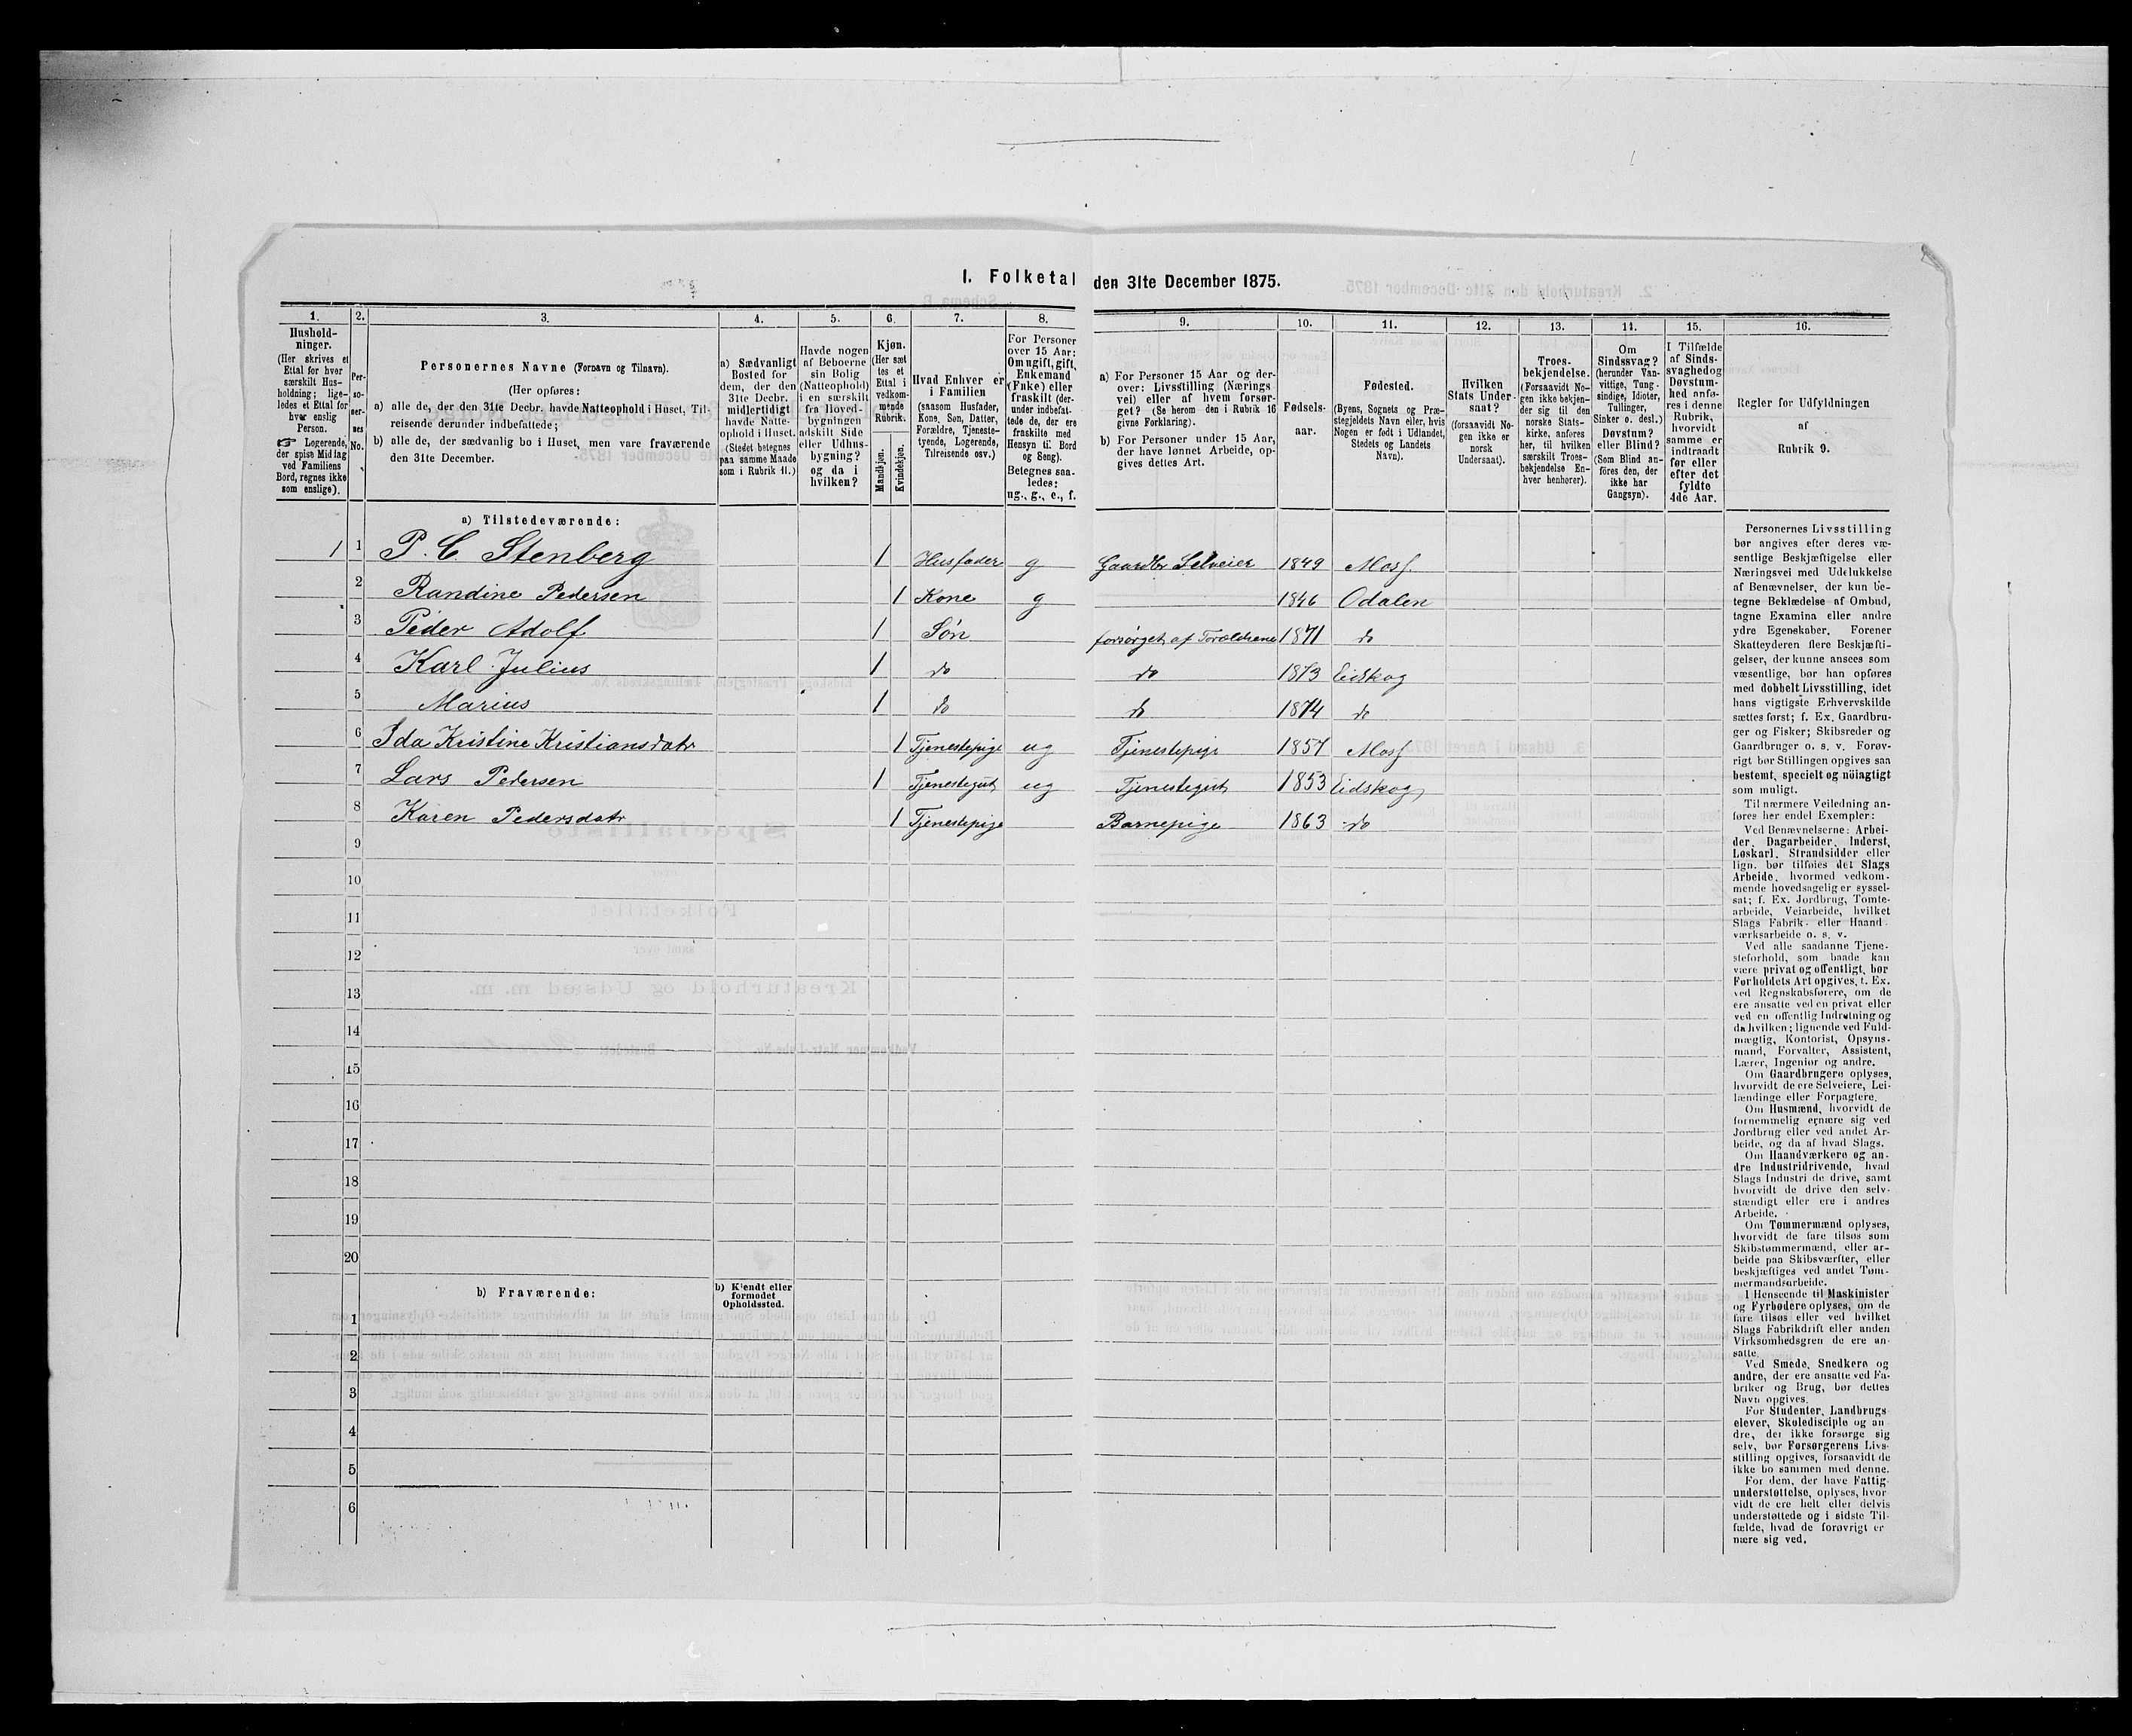 1. Folketal den 31te December 1875.
1. 2. 3. 4. 5. 6. 7. 8. 9. 10. 11. 12. 13. 14. 15. 16.
Hushold-
ninger.
(Her skrives et
Ettal for hver
særskilt Hus-
holdning; lige-
ledes et Ettal for
hver enslig
Person.
☞ Logerende,
der spise Middag
ved Familiens
Bord, regnes ikke
som enslige).
Per-
so-
ner-
nes
No.
Personernes Navne (Fornavn og Tilnavn).
(Her opføres:
a) alle de, der den 31te Decbr. havde Natteophold i Huset, Til-
reisende derunder indbefattede;
b) alle de, der sædvanlig bo i Huset, men vare fraværende
den 31te December.
a) Sædvanligt
Bosted for
dem, der den
31te Decbr.
midlertidigt
havde Natte-
ophold i Huset.
(Stedet betegnes
paa samme Maade
som i Rubrik 11.)
Havde nogen
af Beboerne
sin Bolig
(Natteophold)
i en særskilt
fra Hoved-
bygningen
adskilt Side
eller Udhus-
bygning?
og da i
hvilken?
Kjøn.
(Her sæt
tes et
Ettal i
vedkom-
mende
Rubrik.
Mandkjøn.
Kvindekjøn.
Hvad Enhver er
i Familien
(saasom Husfader,
Kone, Søn, Datter,
Forældre, Tjeneste-
tyende, Logerende,
Tilreisende osv.)
For Personer
over 15 Aar:
Om ugift, gift,
Enkemand
(Enke) eller
fraskilt (der-
under indbefat-
tede de, der ere
fraskilte med
Hensyn til Bord
og Seng).
Betegnes saa-
ledes:
ug., g., e., f.
a) For Personer 15 Aar og der-
over: Livsstilling (Nærings
vei) eller af hvem forsør-
get? (Se herom den i Rubrik 16
givne Forklaring).
b) For Personer under 15 Aar,
der have lønnet Arbeide, op-
gives dettes Art.
Fødsels-
aar.
Fødested.
(Byens, Sognets og Præ-
stegjeldets Navn eller, hvis
Nogen er født i Udlandet,
Stedets og Landets
Navn).
Hvilken
Stats Under-
saat?
(forsaavidt No-
gen ikke er
norsk
Undersaat).
Troes-
bekjendelse.
(Forsaavidt No-
gen ikke bekjen-
der sig til den
norske Stats-
kirke, anføres
her, til hvilken
særskilt Troes-
bekjendelse En-
hver henhører).
Om
Sindssvag?
(herunder Van-
vittige, Tung-
sindige, Idioter,
Tullinger,
Sinker o. desl.)
Døvstum?
eller Blind?
(Som Blind an-
føres den, der
ikke har
Gangsyn).
I Tilfælde
af Sinds-
svaghed og
Døvstum-
hed anfø-
res i denne
Rubrik,
hvorvidt
samme er
indtraadt
før eller
efter det
fyldte
4de Aar.
Regler for Udfyldningen
af
Rubrik 9.
a) Tilstedeværende:
1 1 P. C. Stenberg 1 Husfader g Gaardbr Selveier 1849 Moss
2 Randine Pedersen 1 Kone g 1846 Odalen
3 Peder Adolf 1 Søn forsørget af Forældrene 1871 do
4 Karl Julius 1 do do 1873 Eidskog
5 Marius 1 do do 1874 do
6 Ida Kristine Kristiansdatr 1 Tjenestepige ug Tjenestepige 1857 Moss
7 Lars Pedersen 1 Tjenestegut ug Tjenestegut 1853 Eidskog
8 Karen Pedersdatr 1 Tjenestepige Barnepige 1863 do
9
10
11
12
13
14
15
16
17
18
19
20
b) Fraværende:
b) Kjendt eller
formodet
Opholdssted.
1
2
3
4
5
6
Personernes Livsstilling
bør angives efter deres væ-
sentlige Beskjæftigelse eller
Næringsvei med Udelukkelse
af Benævnelser, der kun be-
tegne Beklædelse af Ombud,
tagne Examina eller andre
ydre Egenskaber. Forener
Skatteyderen flere Beskjæfti-
gelser, der kunne ansees som
væsentlige, bør han opføres
med dobbelt Livsstilling, idet
hans vigtigste Erhvervskilde
sættes først; f. Ex. Gaardbru-
ger og Fisker; Skibsreder og
Gaardbruger o. s. v. Forøv-
rigt bør Stillingen opgives saa
bestemt, specielt og nöiagtigt
som muligt.
Til nærmere Veiledning an-
føres her endel Exempler:
Ved Benævnelserne: Arbei-
der, Dagarbeider, Inderst,
Løskarl, Strandsidder eller
lign. bør tilføies det Slags
Arbeide, hvormed vedkom-
mende hovedsagelig er syssel-
sat; f. Ex. Jordbrug, Tomte-
arbeide, Veiarbeide, hvilket
Slags Fabrik- eller Haand-
værksarbeide o. s. v.
Ved alle saadanne Tjene-
steforhold, som baade kan
være privat og offentligt, bør
Forholdets Art opgives, t. Ex.
ved Regnskabsførere, om de
ere ansatte ved en privat eller
ved en offentlig Indretning og
da hvilken; lignende ved Fuld-
mægtig, Kontorist, Opsyns-
mand, Forvalter, Assistent,
Lærer, Ingeniør og andre.
Om Gaardbrugere oplyses,
hvorvidt de ere Selveiere, Lei-
lændinge eller Forpagtere.
Om Husmænd, hvorvidt de
fornemmelig ernære sig ved
Jordbrug eller ved andet Ar-
beide, og da af hvad Slags.
Om Haandværkere og an-
dre Industridrivende, hvad
Slags Industri de drive, samt
hvorvidt de drive den selv-
stændigt eller ere i andres
Arbeide.
Om Tømmermænd oplyses,
hvorvidt de fare tilsøs som
Skibstømmermænd, eller ar-
beide paa Skibsværfter, eller
beskjæftiges ved andet Tøm-
mermandsarbeide.
I Henseende til Maskinister
og Fyrbødere oplyses, om de
fare tilsøs eller ved hvilket
Slags Fabrikdrift eller anden
Virksomhedsgren de ere an-
satte.
Ved Smede, Snedkere og
andre, der ere ansatte ved Fa-
briker og Brug, bør dettes
Navn opgives.
For Studenter, Landbrugs
elever, Skoledisciple og an
dre, der ikke forsørge sig
selv, bør Forsørgerens Livs-
stilling opgives, forsaavidt de
ikke bo sammen med denne.
For dem, der have Fattig-
understøttelse, oplyses, hvor
vidt de ere helt eller delvis
understøttede og i sidste Til-
fælde, hvad de forøvrigt er
nære sig ved.